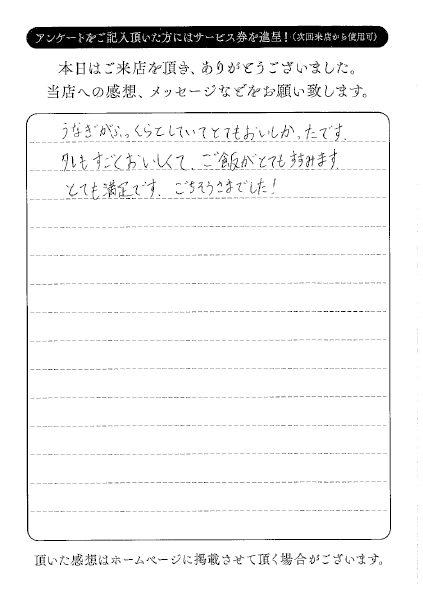 アンケートをご記入頂いた方にはサービス券を進呈！（次回来店から使用可）
本日はご来店を頂き、ありがとうございました。
当店への感想、メッセージなどをお願い致します。
うなぎがふっくらとしていてとてもおいしかったです。
タレもすごくおいしくて、ご飯がとてもすすみます。
とても満足です。ごちそうさまでした！
頂いた感想はホームページに掲載させて頂く場合がございます。